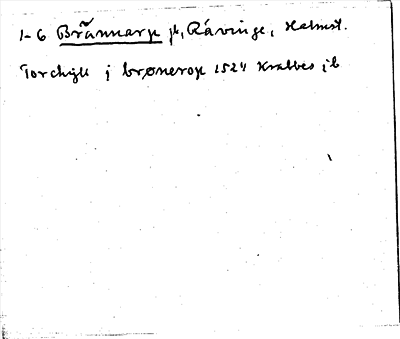 1-6 Brännarp jb, Rävinge, Halmst.
Torchijll j brønerop 1524 Krabbes jb